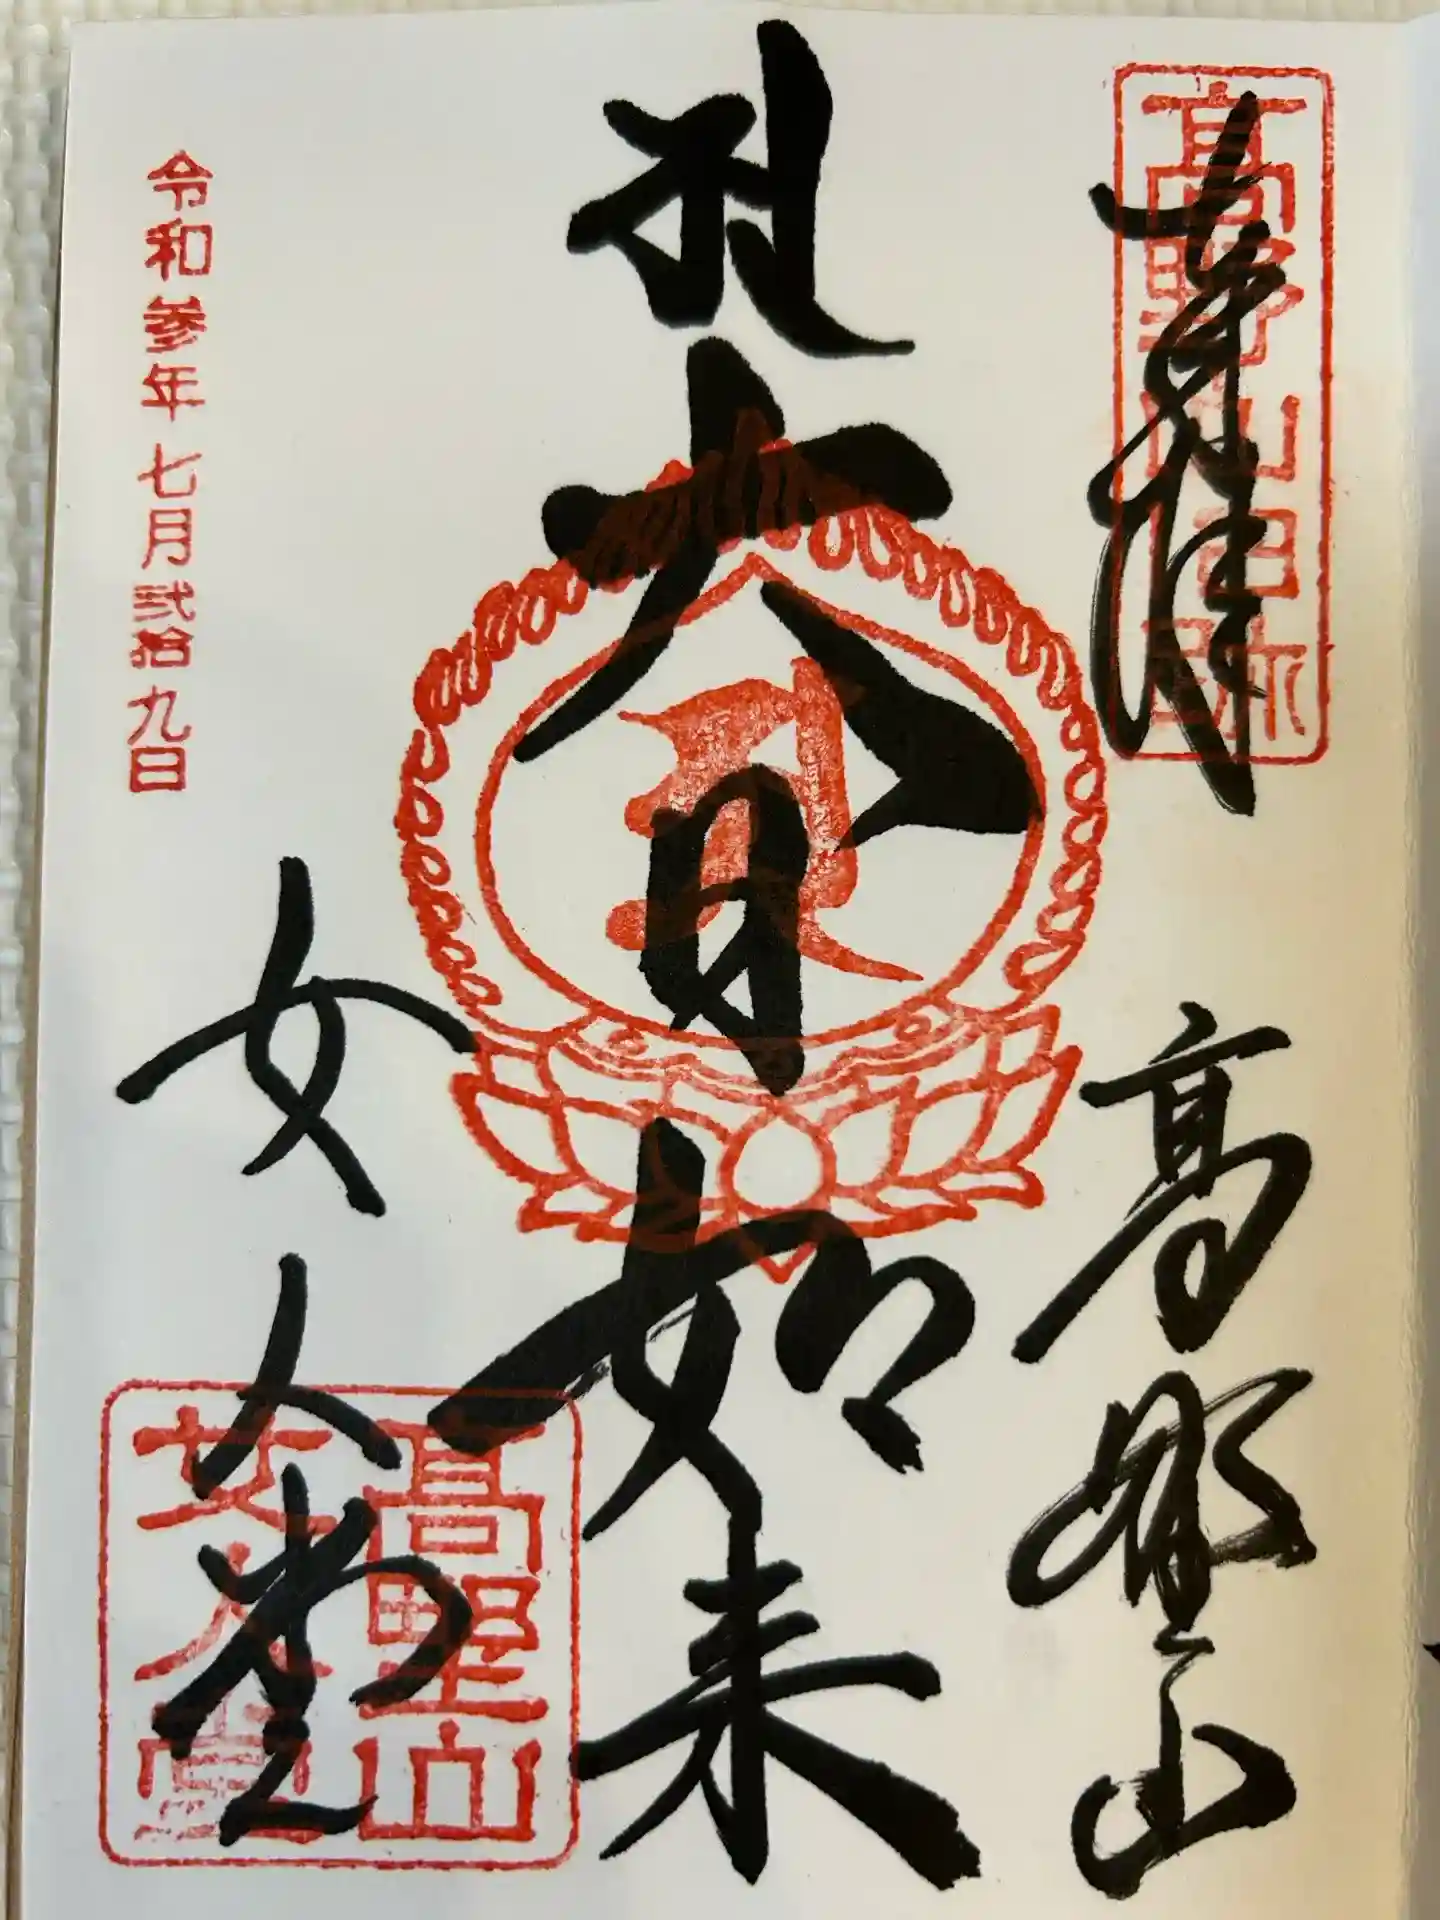 奉拝
高野山
高野山
大日如来
女人堂
高野山
女人堂
令和参年七月弐拾九日